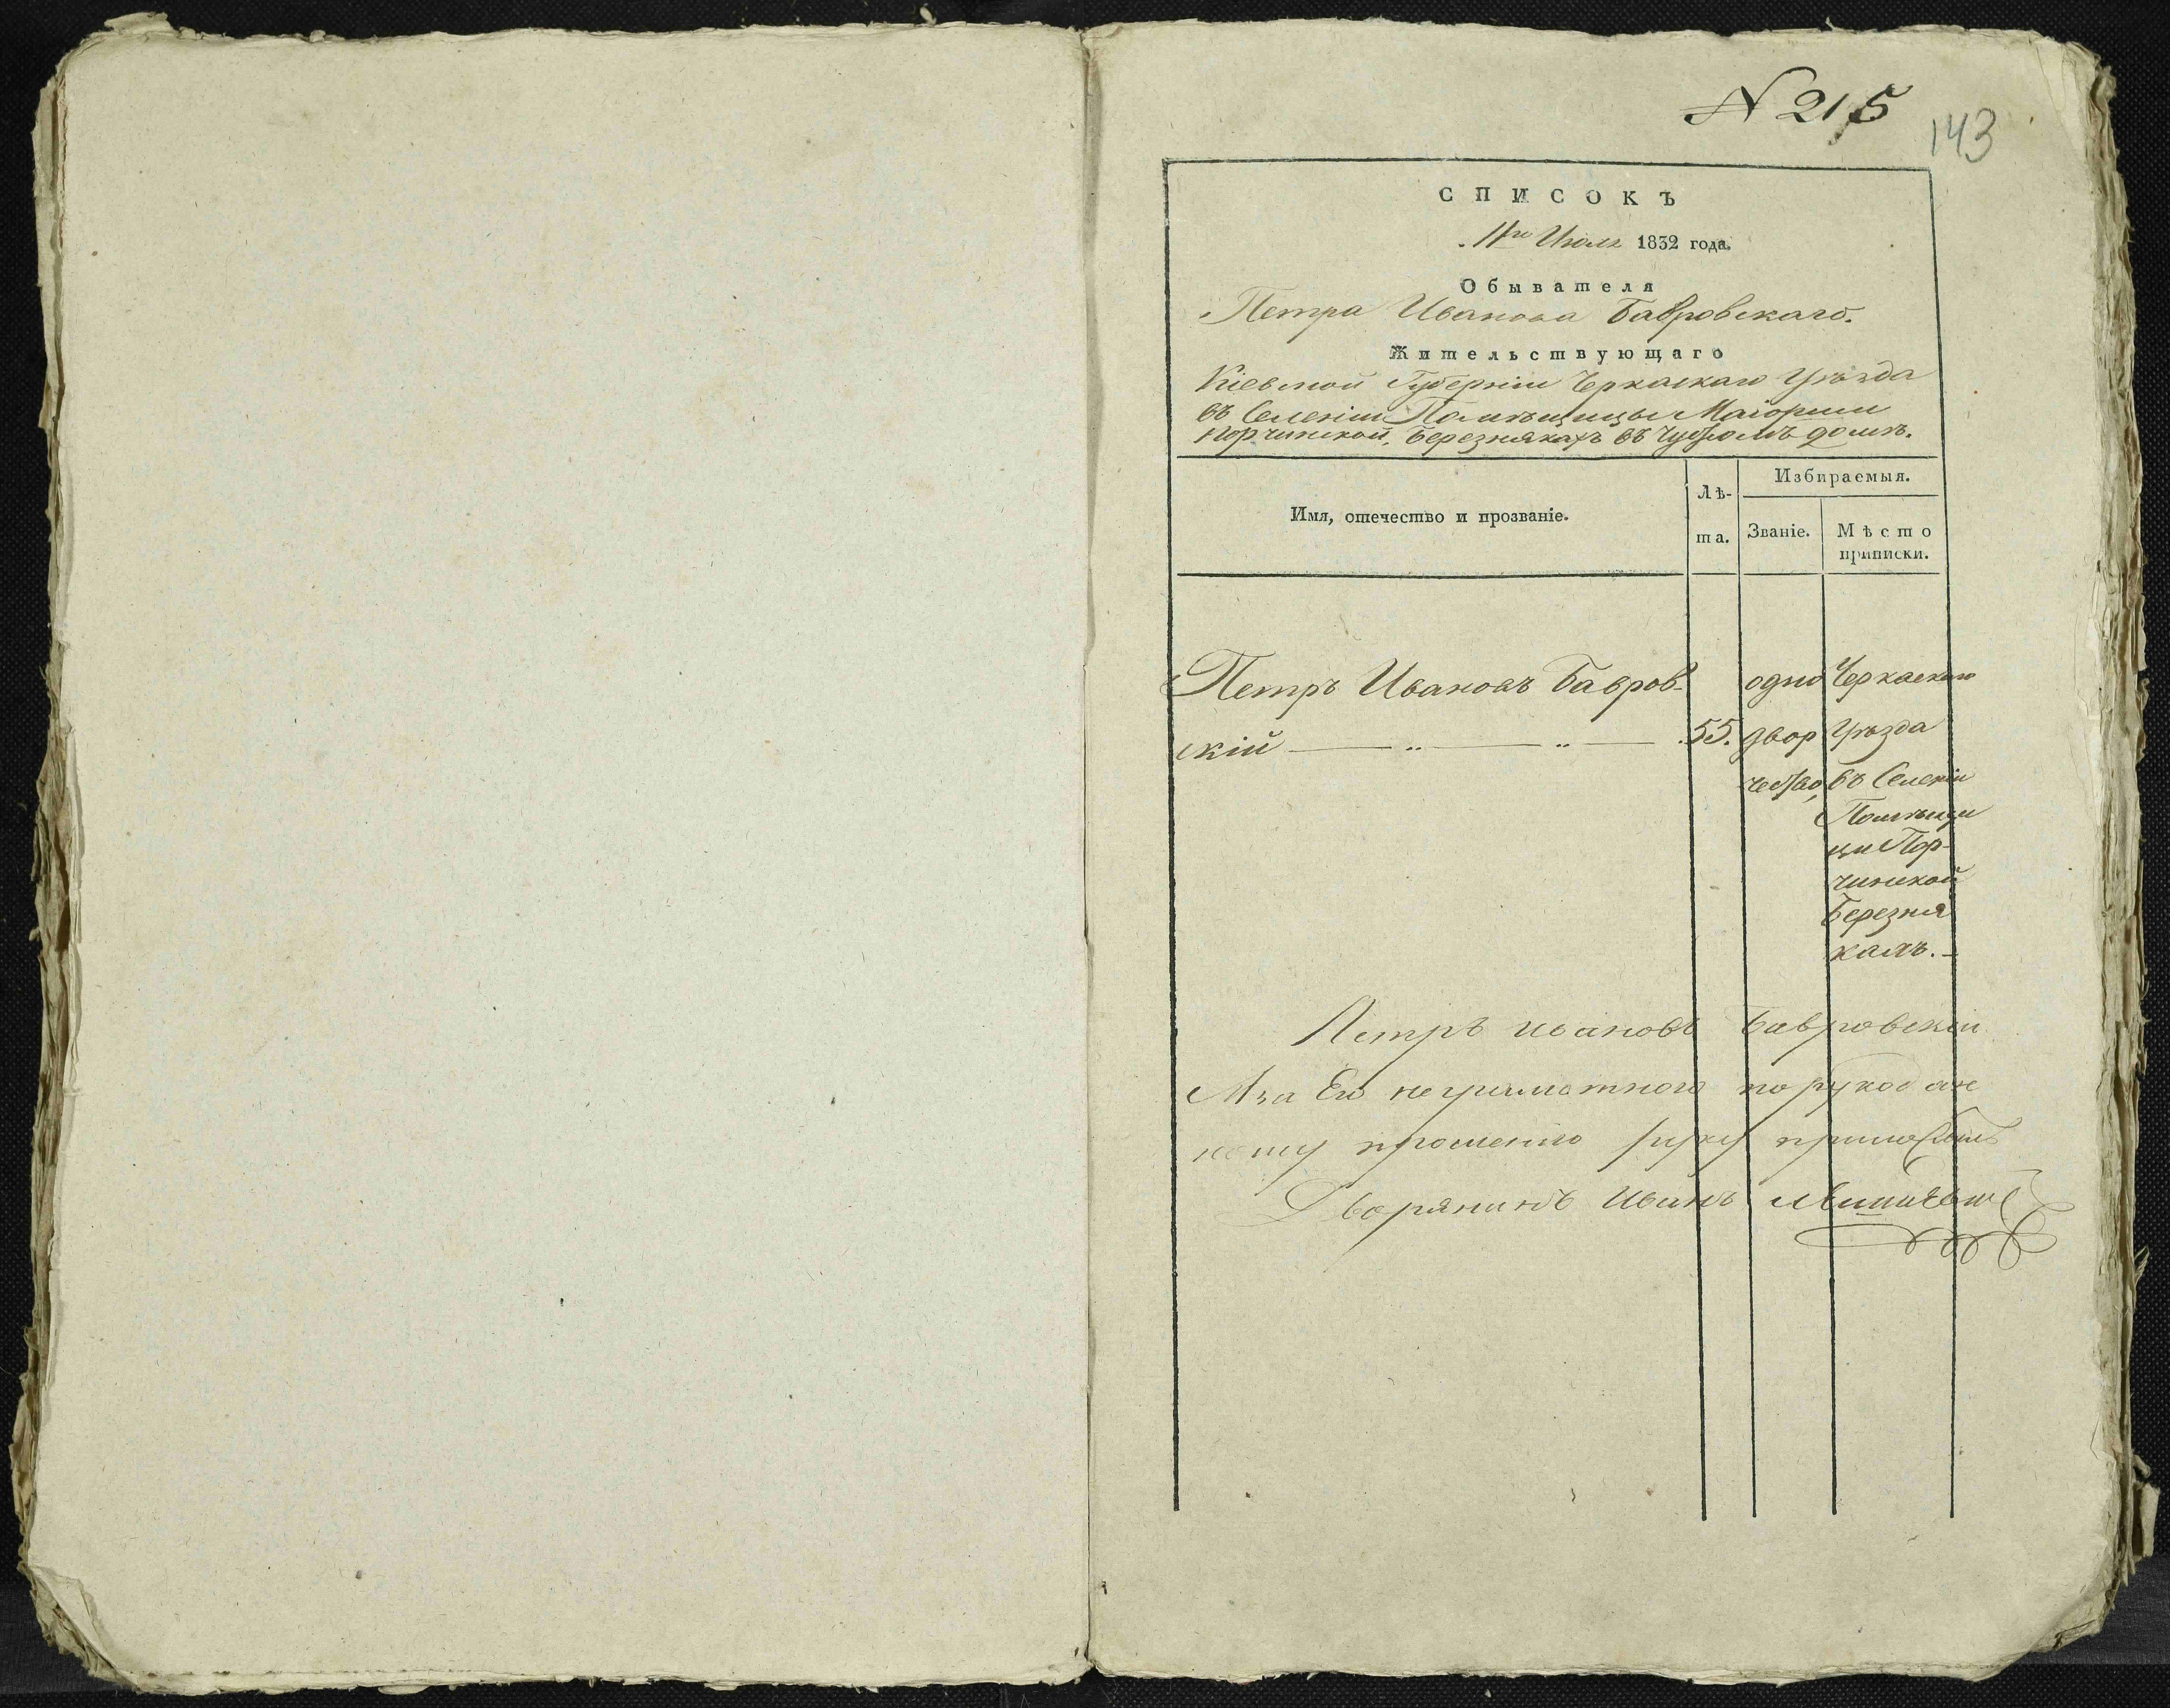 N 215
143
СПИСОКЪ
11го Июля 1832 года.
Обывателя
Петра Иванова Бавровскаго.
Жительствующаго
Кіевской Губерніи Черкаскаго Уѣзда
въ Селеніи Помѣщицы Маіорши
Порчинской, Березнякахъ въ чужомъ домѣ.
Имя, отечество и прозваніе.
Лѣ-
та.
Избираемыя.
Званіе.
Мѣсто
приписки.
Петръ Ивановъ Бавров-
скій 55.
одно
двор
чество,
Черкаскаго
Уѣзда
въ Селеніи
Помѣщи
цы Пор-
чинской
Березня
кахъ.-
Петръ Ивановъ Бавровскій
А за Его неграмотного по рукодан
ному прошению руку приложилъ
Дворянинъ Иванъ